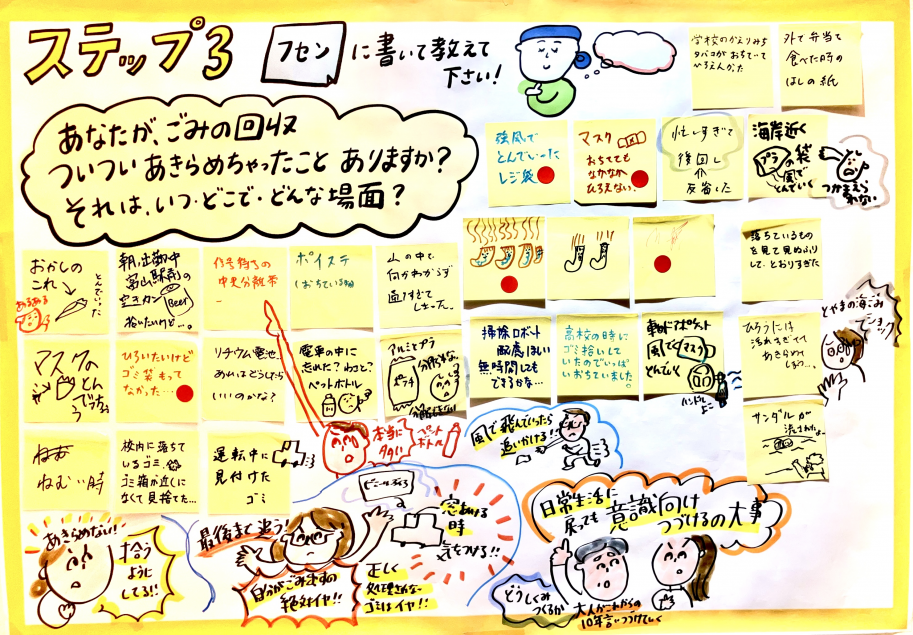 ステップ3
フセン
に書いて教えて
下さい!
あなたが、ごみの回収
ついついあきらめちゃったこと ありますか?
それは、いつ・どこで・どんな場面?
学校のかえりみち
タバコが おちていて
ひろえんかった
外で弁当を
食べた時の
はしの紙
強風で
とんでいった
レジ袋
マスク
おちてても
なかなか
ひろえない.
忙しすぎて
後回し
反省した
海岸近く
プラの袋
風で
とんでいく
つかまえら
れない
おかしの
これ
とんでいった
あるある
朝、出勤中
富山駅前の
空きカン
Beer
拾いたいけど…。
信号待ちの
中央分離帯
ポイステ
山の中で
落ちているもの
を見て見ぬふり
して、とおりすぎた
とやまの海ごみ
ショック
マスクの
とんでっちゃう
ひろいたいけど
ゴミ袋もって
なかった…
リチウム電池、
いいのかな?
電車の中に
忘れた?わざと?
ペットボトル
アルミとプラ
掃除ロボット
無時間しても
できるかな…
高校の時に
ゴミ拾いして
いたのでいっぱ
いおちていました。
風で
マスク
とんでいく
ひろうには
汚れすぎてて
あきらめて
しまう…、
サンダルが
流された
ねむい時
校内に落ちて
いるゴミ、
ゴミ箱が近くに
なくて見捨てた…
運転中に
見付けた
ゴミ
本当に
多い
ペット
ボトル
風で飛んでいったら
追いかける!!
あきらめない!
拾う
ように
してる!!
最後まで追う!
自分がごみ出すの
絶対イヤ!!
窓あける
時
気をつける!!
正しく
処理されない
ゴミはイヤ!!
日常生活に
戻っても 意識向け
つづけるの大事
どうしくみ
つくるか
大人がこれからの
10年言いつづけていく